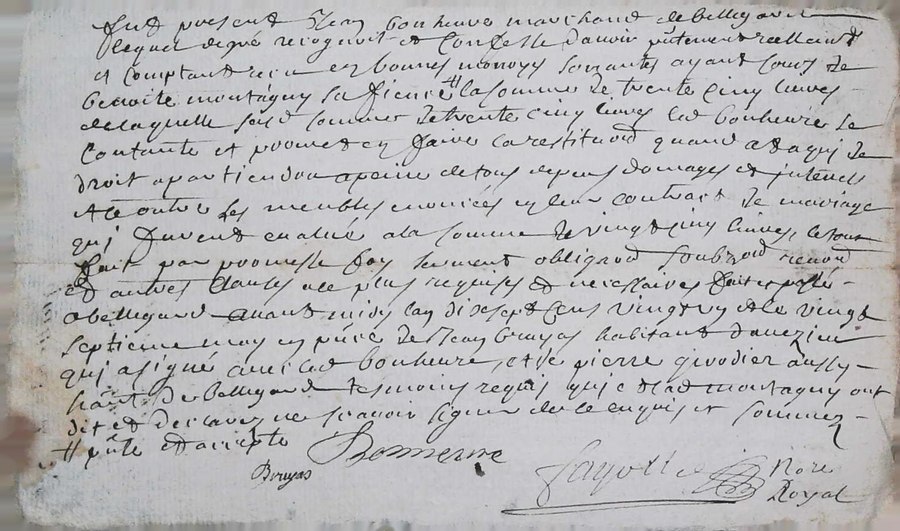 fut present Jean bonheure marchand de bellegarde
lequel de gré recognoit et confesse d'avoir pntement reellemt
et comptant receu en bonnes monoyes sonantes ayant cours de
benoite montagny sa fiencé # la somme de trente cinq livres
de laquelle susd somme de trente cinq livres led bonheure se
contante et promet en faire la restituon quand a qui de
droit apartiendra a peine de tous depens domages et interets
outre les meubles enoncés en leur contract de mariage
qui furent evalué a la somme de vingt cinq livres, le tout
fait par promesse foy serment obligaon soubzon renon
et autres clauses a ce plus requises et necessaires fait et passé
a bellegard avant midy l'an dix sept cens vingt et le vingt
septieme may en pnce de Jean bruyas habitant d'aveizieu
qui a signé avec led bonheure, et de pierre aussy
habt de bellegard tesmoins requis qui et lad montagny ont
dit et declaré ne scavoir signer de ce enquis et sommez
# pnte et accepte
Bonneure
Bruyas
Nore
Royal